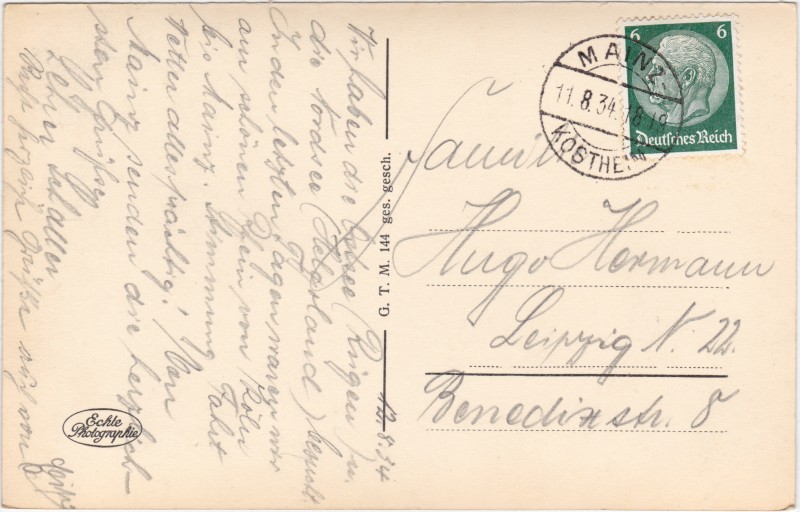 Wir haben die Ostsee (Rügen) u.
die Nordsee (Helgoland) besucht.
In den letzten Tagen waren wir
am schönen Rhein von Köln
bis Mainz. Stimmung Fahrt
Wetter alles prächtig! Von
Mainz senden die herzlich-
sten Grüße
Lehrer
Recht herzliche Grüße auch von
10.8.34
G. T. M. 144 ges. gesch.
Echte
Photographie
6 6
Deutsches Reich
MAINZ-
11.8.34
KOSTHEIM
Familie
Hugo Hermann
Leipzig N. 22.
Benedixstr. 8